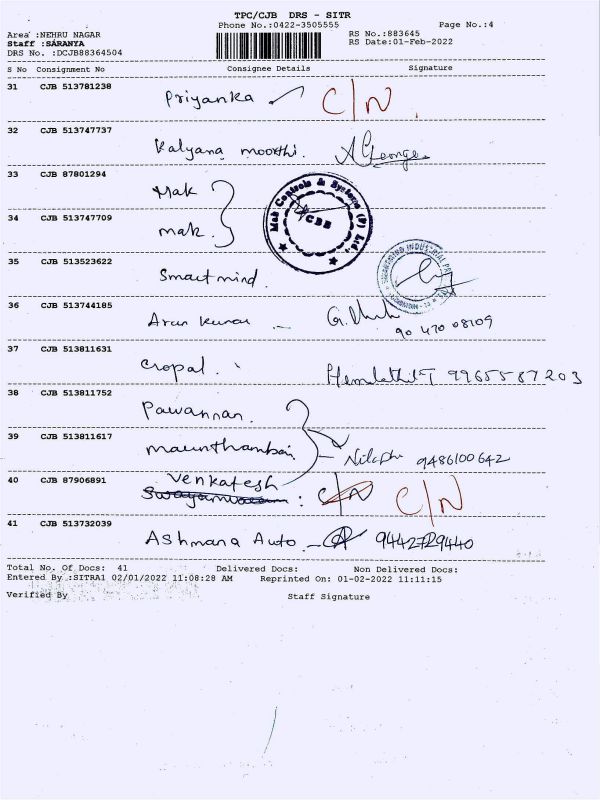 TPC/CJB DRS - SITR
Phone No.:0422-3505555 Page No.:4
Area :NEHRU NAGAR RS No.:883645
Staff :SARANYA RS Date:01-Feb-2022
DRS No. :DCJB88364504
S No Consignment No Consignee Details Signature
31 CJB 513781238 Priyanka C/N
32 CJB 513747737 Kalyana moorthi. A George
33 CJB 87801294 Mak
Mak Controls & Systems (P) Ltd.,
CBE
34 CJB 513747709 mak.
35 CJB 513523622 Smart mind.
36 CJB 513744185 Arun Kumar 90 470 08109
37 CJB 513811631 Cropal. Hemalatha T 9965587203
38 CJB 513811752 Pawannan.
39 CJB 513811617 9486100642
40 CJB 87906891 Venkatesh C/N C/N
41 CJB 513732039 Ashmana Auto 9442729440
Total No. Of Docs: 41 Delivered Docs: Non Delivered Docs:
Entered By :SITRA1 02/01/2022 11:08:28 AM Reprinted On: 01-02-2022 11:11:15
Verified By Staff Signature